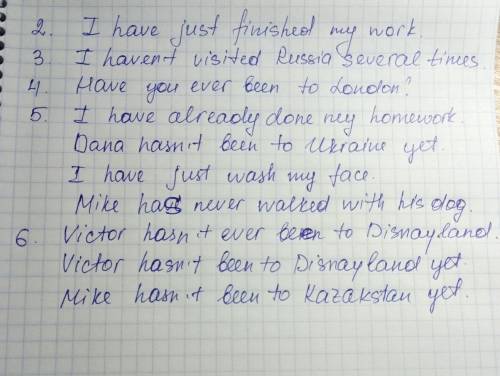 2. I have just finished my work.
3. I haven't visited Russia several times.
4. Have you ever been to London?
5. I have already done my homework.
Dana hasn't been to Ukraine yet.
I have just wash my face.
Mike has never walked with his dog.
6. Victor hasn't ever been to Disnayland.
Victor hasn't been to Disnayland yet.
Mike hasn't been to Kazakstan yet.